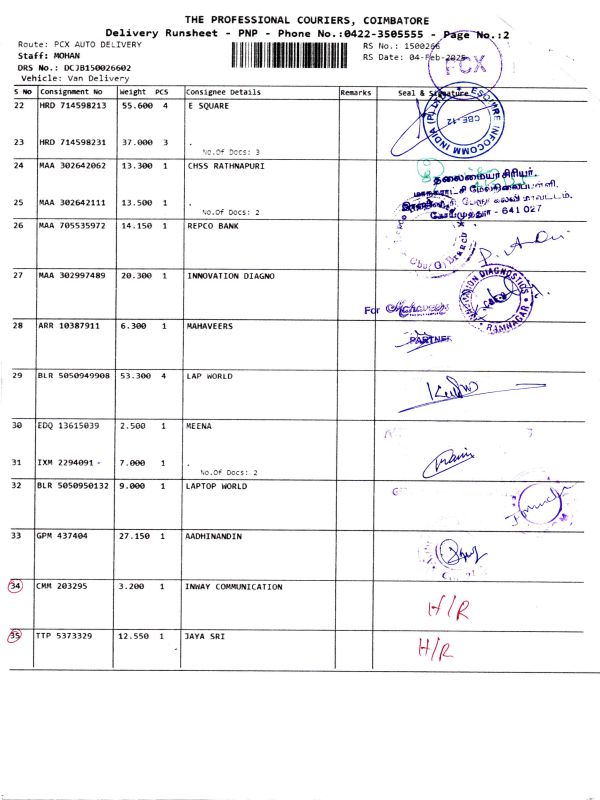 THE PROFESSIONAL COURIERS, COIMBATORE
Delivery Runsheet - PNP - Phone No.:0422-3505555 - Page No.:2
Route: PCX AUTO DELIVERY
RS No.: 1500266
Staff: MOHAN
RS Date: 04-Feb-2025
DRS No.: DCJB150026602
PCX
Vehicle: Van Delivery
S No Consignment No Weight PCS Consignee Details Remarks Seal & Signature
22 HRD 714598213 55.600 4 E SQUARE
INFOCOMM INDIA (P) LTD
CBE-12
23 HRD 714598231 37.000 3 .
No.Of Docs: 3
24 MAA 302642062 13.300 1 CHSS RATHNAPURI
தலைமையாசிரியர்,
மாநகராட்சி மேல்நிலைப்பள்ளி,
25 MAA 302642111 13.500 1 .
கோயமுத்தூர் - 641 027
No.Of Docs: 2
26 MAA 705535972 14.150 1 REPCO BANK
27 MAA 302997489 20.300 1 INNOVATION DIAGNO
DIAGNOSTICS
RAMNAGAR
For Mahaveers
28 ARR 10387911 6.300 1 MAHAVEERS
PARTNER
29 BLR 5050949908 53.300 4 LAP WORLD
30 EDQ 13615039 2.500 1 MEENA
31 IXM 2294091 - 7.000 1 .
No.Of Docs: 2
32 BLR 5050950132 9.000 1 LAPTOP WORLD
33 GPM 437404 27.150 1 AADHINANDIN
34 CMM 203295 3.200 1 INWAY COMMUNICATION
H/R
35 TTP 5373329 12.550 1 JAYA SRI
H/R